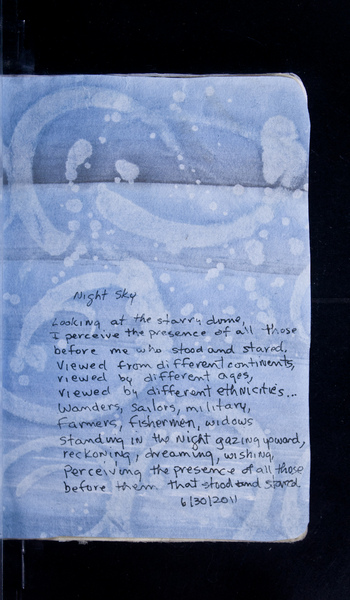 Night Sky
Looking at the starry dome,
I perceive the presence of all those
before me who stood and stared.
Viewed from different continents,
viewed by different ages,
viewed by different ethnicities...
Wanders, sailors, military,
Farmers, fishermen, widows
standing in the night gazing upward,
reckoning, dreaming, wishing,
Perceiving the presence of all those
before them that stood and stared
6/30/2011